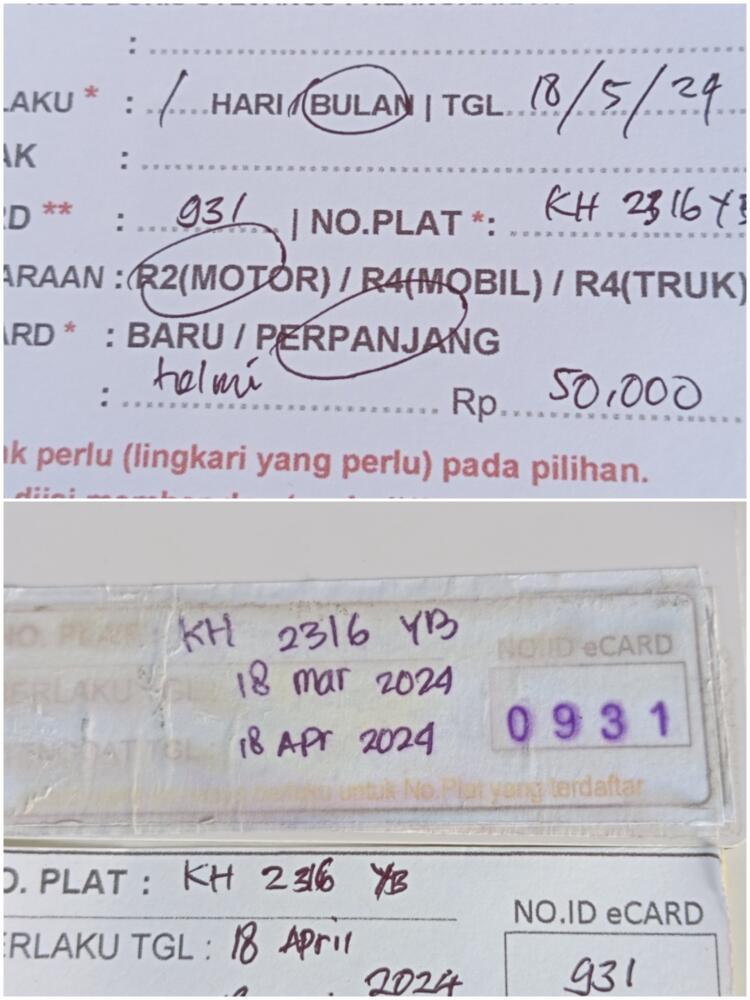 : ........................
LAKU * : ./.... HARI / BULAN | TGL 18/5/24
AK : ........................
D ** : 931 | NO.PLAT *: KH 2316 YB
ARAAN : R2(MOTOR) / R4(MOBIL) / R4(TRUK)
ARD * : BARU / PERPANJANG
: helmi Rp. 50.000
ak perlu (lingkari yang perlu) pada pilihan.
NO. PLAT : KH 2316 YB
NO.ID eCARD
BERLAKU TGL : 18 Mar 2024
TENGGAT TGL : 18 Apr 2024
0931
berlaku untuk No.Plat yang terdaftar
O. PLAT : KH 2316 YB
NO.ID eCARD
ERLAKU TGL : 18 April
2024
931